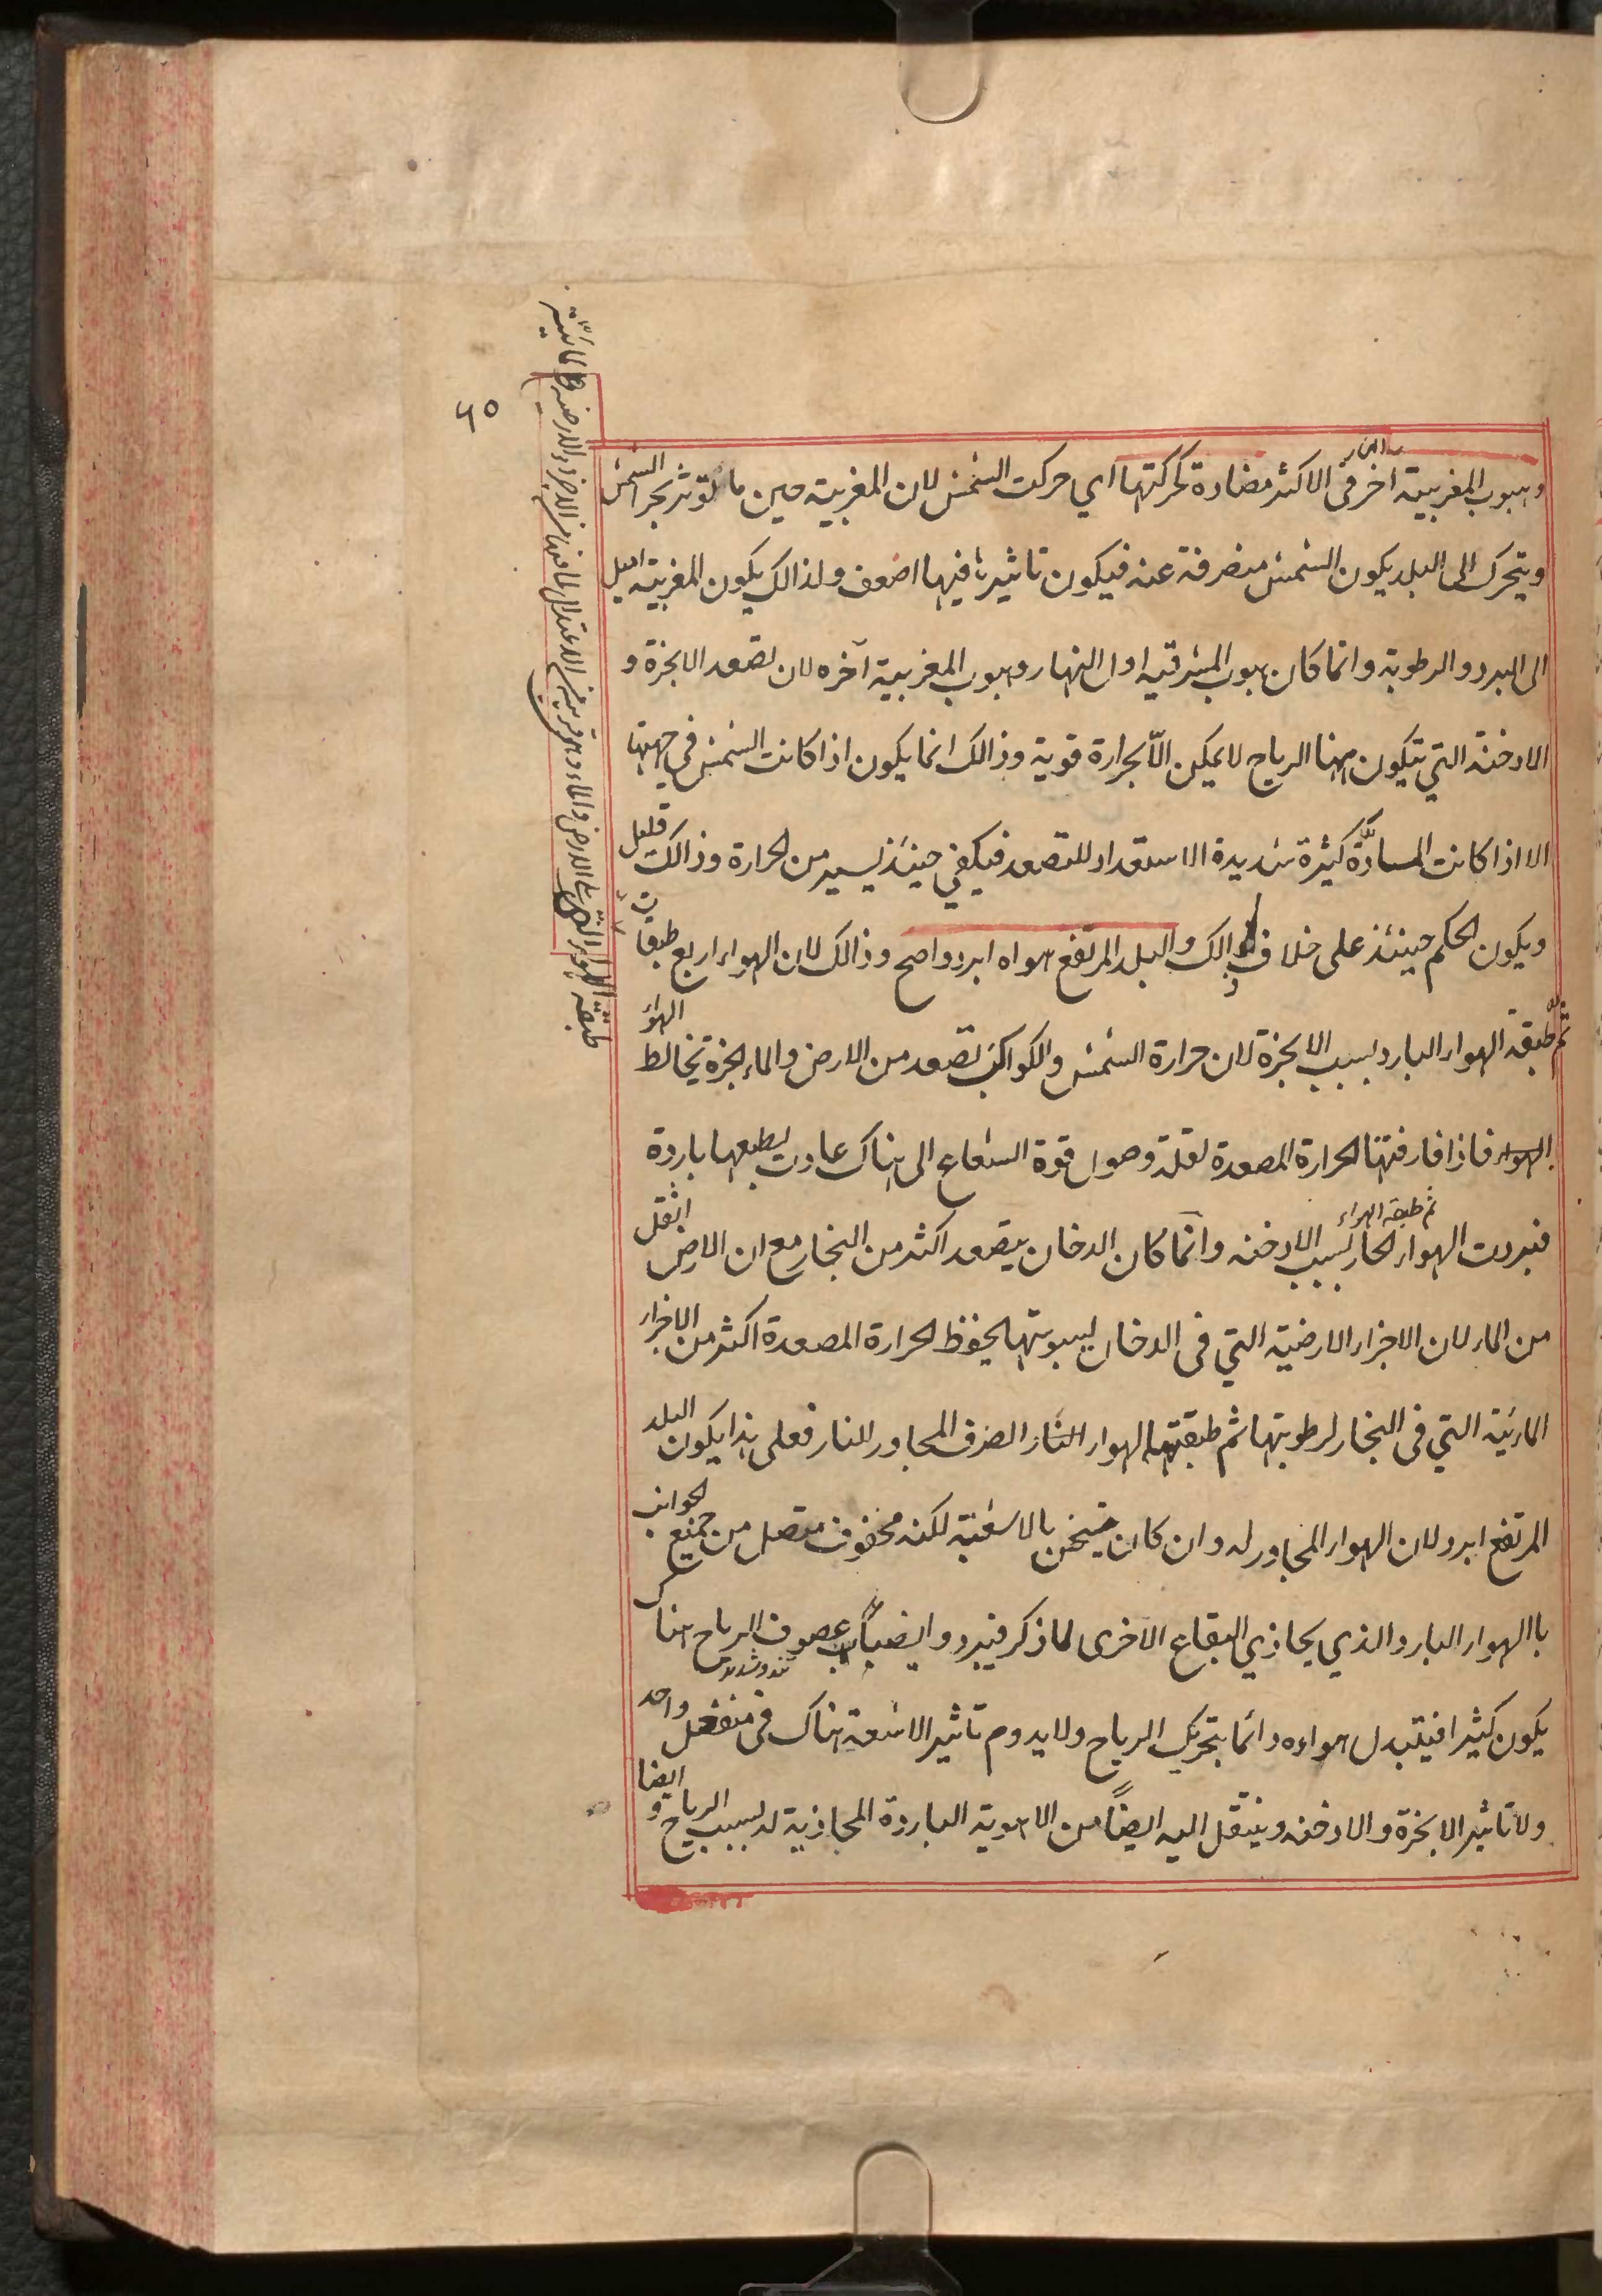 ٦٥
وهبوب المغربية اخر النهار فى الاكثر مضادة لحركتها اي حركت الشمس لان المغربية حين ما تؤثر بحر الشمس
ويتحرك الى البلد يكون الشمس منصرفة عنه فيكون تاثيرها فيها اضعف ولذالك يكون المغربية اميل
الى البرد والرطوبة وانما كان هبوب المشرقيه اول النهار وهبوب المغربية آخره لان تصعد الابخرة و
الادخنة التي تتكون منها الرياح لا يمكن الّا بحرارة قوية وذالك انما يكون اذا كانت الشمس في جهتها
الا اذا كانت المسادّة كثيرة شديدة الاستعداد للتصعد فيكفي حينئذ يسير من الحرارة وذالك قليل
ويكون الحكم حينئذ على خلاف ذالك والبلد المرتفع هواه ابرد واصح وذالك لان الهواء اربع طبقات
ثم طبقه الهواء البارد بسبب الابخرة لان حرارة الشمس والكواكب تصعد من الارض والماء ابخرة تخالط الهواء
الهواء فاذا فارقتها الحرارة المصعدة لقلة وصول قوة الشعاع الى هناك عادت بطبعها باردة
فبردت الهواء ثم طبقه الهواء الحار بسبب الادخنه وانما كان الدخان يتصعد اكثر من البخار مع ان الارض اثقل
من الماء لان الاجزاء الارضية التي فى الدخان ليبوستها يحفظ الحرارة المصعدة اكثر من الاجزاء
المائية التي فى البخار لرطوبتها ثم طبقتها الهواء النار الصرف المجاور للنار فعلى هذا يكون البلد
المرتفع ابرد لان الهواء المجاور له وان كان يتسخن بالاشعة لكنه محفوف متصل من جميع الجوانب
باالهواء البارد الذي يحاذي البقاع الاخرى لما ذكر فيبرد وايضاً عصوف الرياح هناك
تند وشديد
يكون كثيرا فيتبدل هواءه دائما بتحريك الرياح ولا يدوم تاثير الاشعة هناك فى منفعل واحد
ولا تاثير الابخرة والادخنه وينتقل اليه ايضاً من الاهوية الباردة المحاذية له بسبب الرياح وايضا